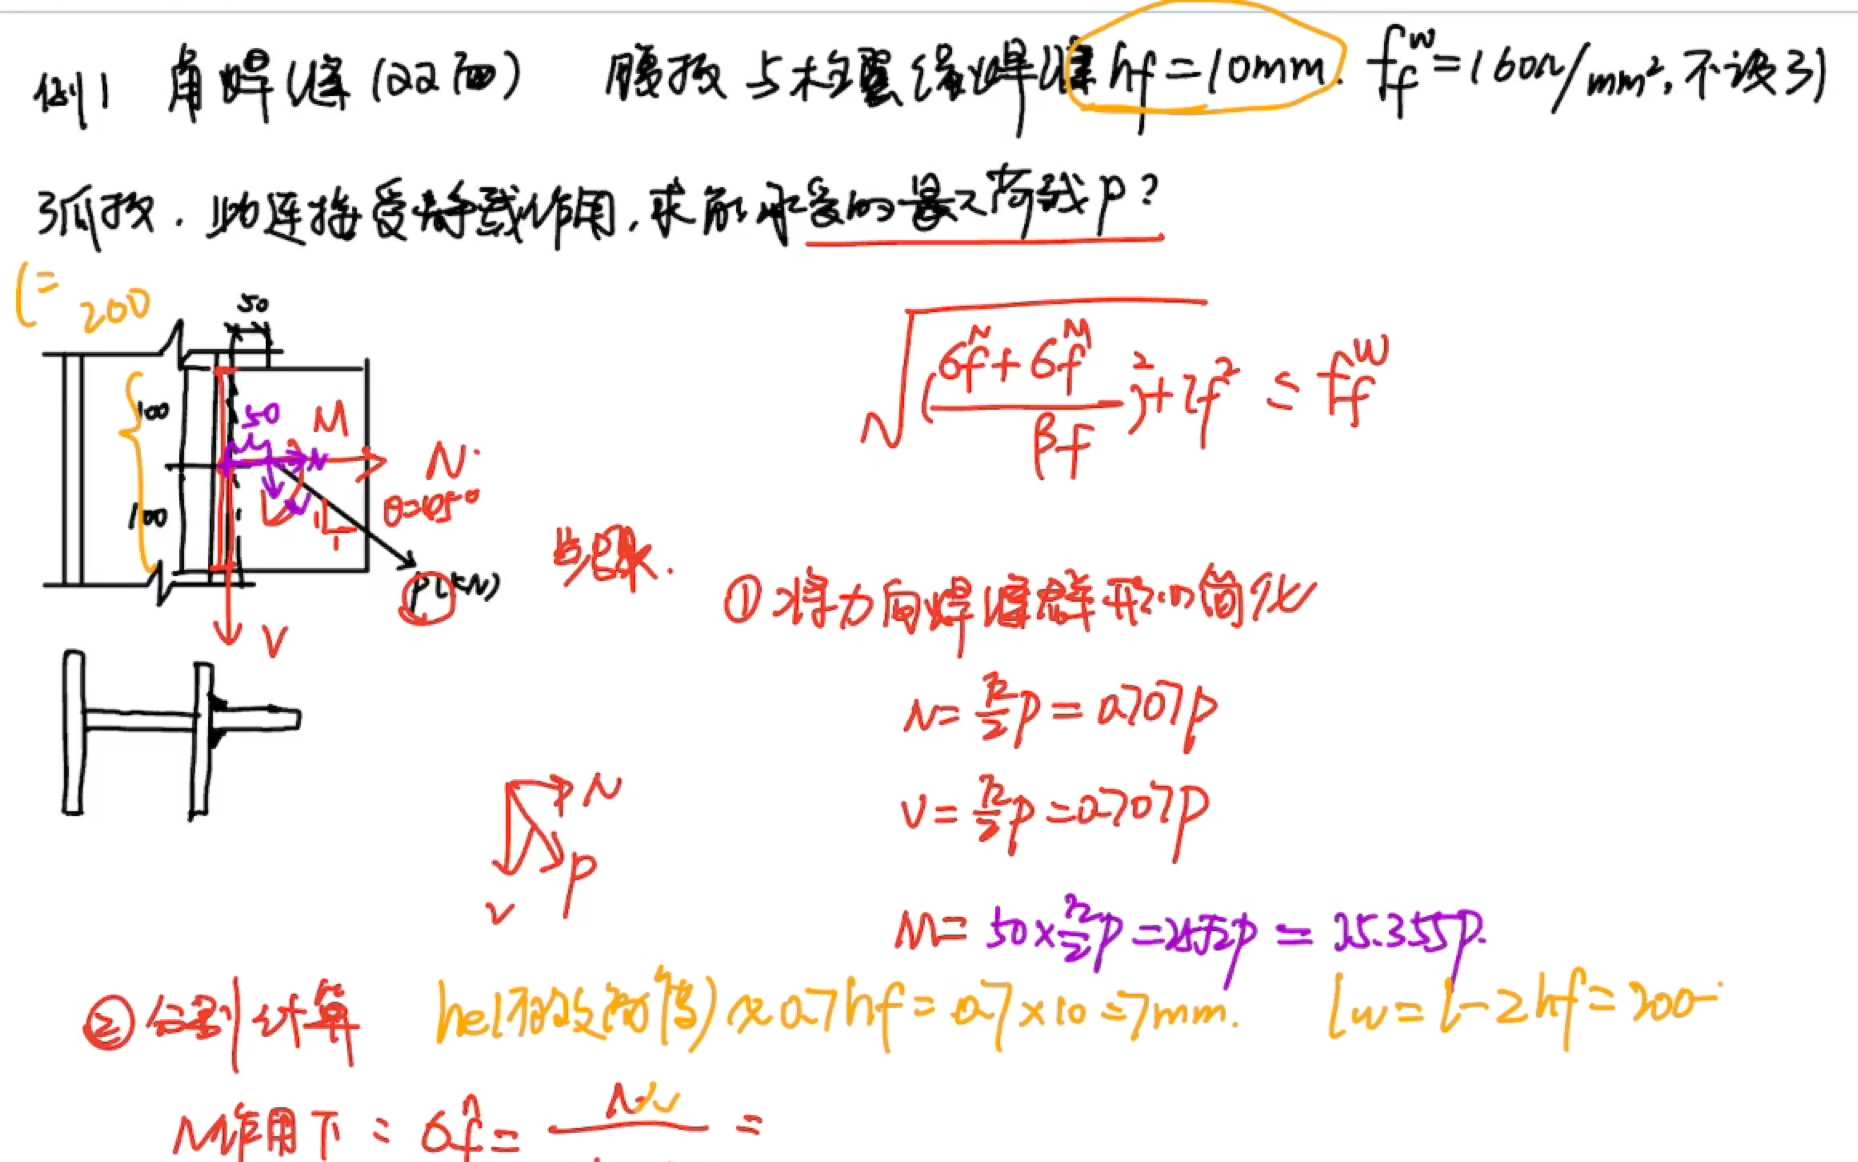 例1 角焊缝(22面) 腹板与柱翼缘焊缝hf=10mm. ffʷ=160N/mm², 不设引
弧板. 此连接受静载作用, 求能承受的最大荷载P?
l=200
50
100
50
M
N
θ=45°
100
1
1
P(kN)
V
√((σfᴺ+σfᴹ)/βf)²+τf² ≤ ffʷ
步骤.
①将力向焊缝群形心简化
N=√2/2P=0.707P
V=√2/2P=0.707P
N
P
V
M=50×√2/2P=25√2P=35.355P.
②分别计算 he(有效高度)≈0.7hf=0.7×10=7mm. lw=l-2hf=200-
N作用下: σfᴺ= N =